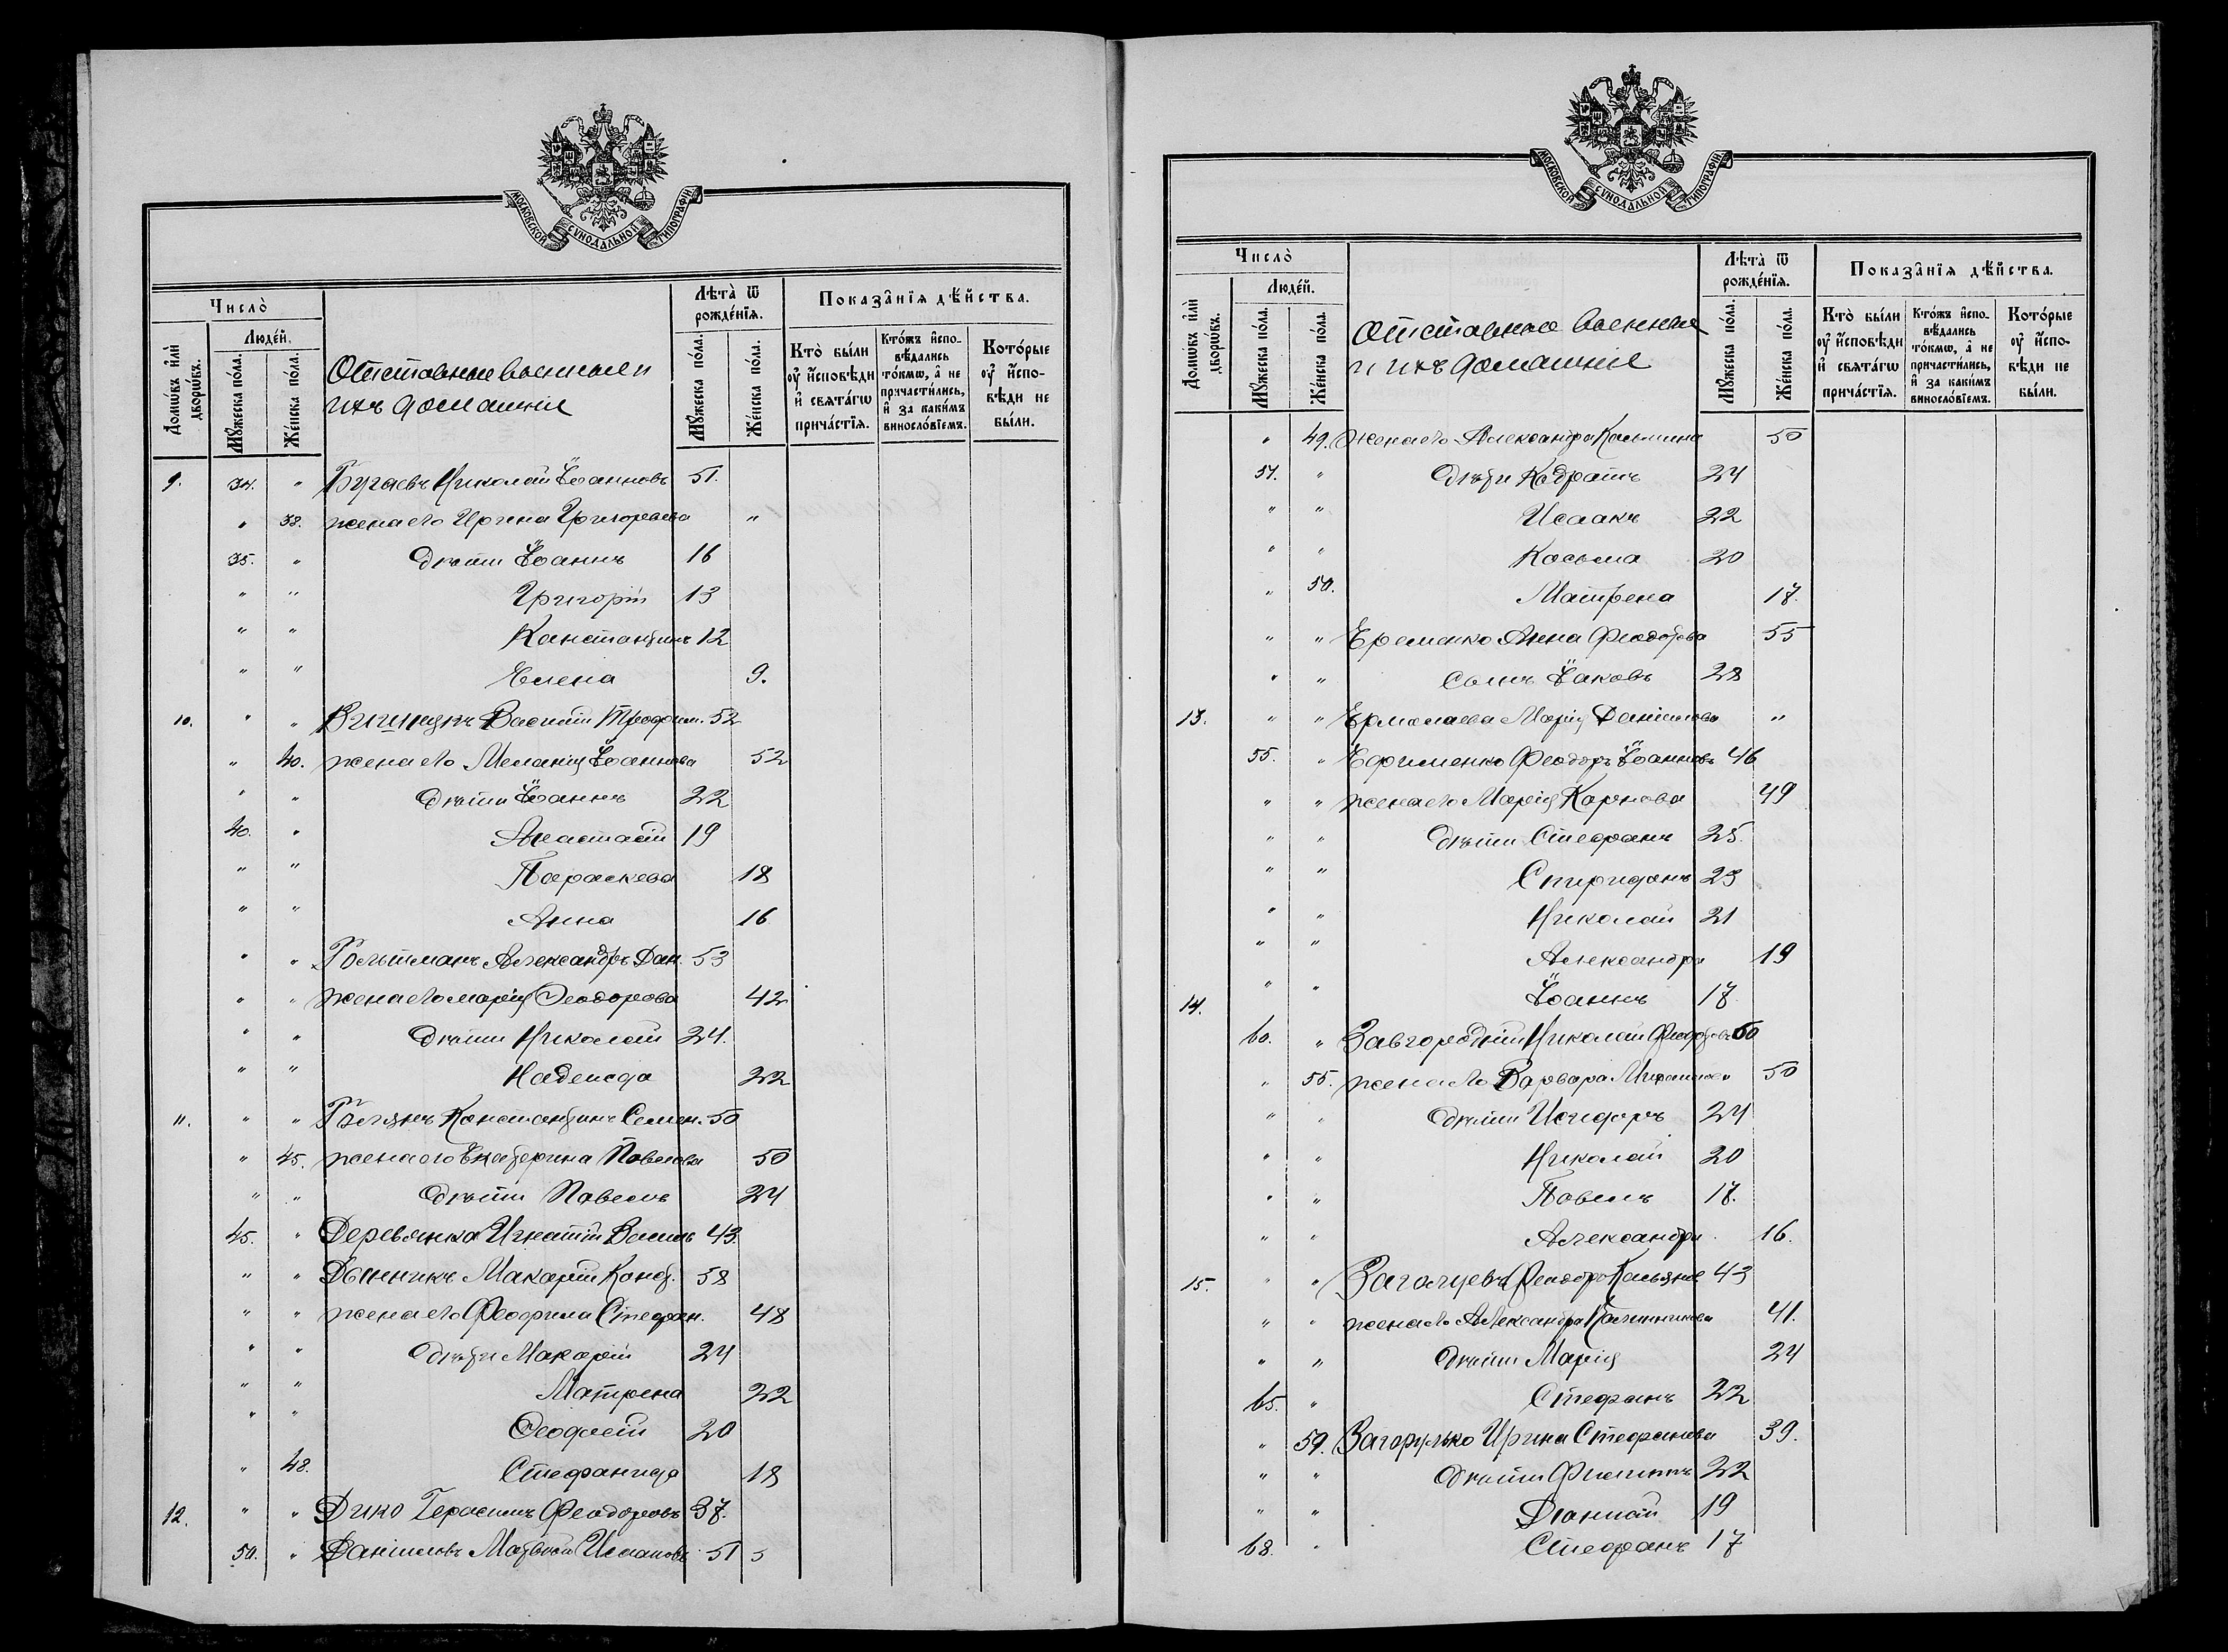 МОСКОВСКОЙ СѴНОДАЛЬНОЙ ТИПОГРАФІИ
Число̀
Людéй.
Домѡ́въ и҆лѝ дворѡ́въ.
Мꙋ́жеска по́ла.
Же́нска по́ла.
Отставные военные и
ихъ домашніе
Лѣта̀ ѿ рожде́нїѧ.
Мꙋ́жеска по́ла.
Же́нска по́ла.
Показа̑нїѧ дѣ́йства.
Кто̀ бы́ли оу҆ и҆сповѣди и҆ свѧта́гѡ прича́стїѧ.
Кто́жъ и҆сповѣдались то́кмѡ, а҆ не причасти́лись, и҆ за каки́мъ винословїемъ.
Кото́рые оу҆ и҆сповѣди не бы́ли.
9. 34. " Бугаевъ Николай Іоанновъ 51.
" 38. жена его Ирина Григорьева "
35. " дѣти Іоаннъ 16
" " Григорій 13
" " Константинъ 12
" " Елена 9.
10. " " Василій Трофим. 52
" 40. жена его Меланія Іоаннова 52
" " дѣти Іоаннъ 22
40. " Анастасій 19
" " Параскева 18
" " Анна 16
" " Гольтманъ Александръ Дан. 53
" " жена его Марія Ѳеодорова 42
" " дѣти Николай 24.
" " Надежда 22
11. " " Константинъ Семен. 50
" 45. жена его Екатерина Павлова 50
" " дѣти Павелъ 24
45. " Деревянка Игнатій Васил 43.
" " Дынникъ Макарій Конд. 58
" " жена его Феофила Стефан. 48
" " дѣти Макарій 24
" " Матрена 22
" " 20
" 48. Стефанида 18
12. " " Дико Герасимъ Феодоровъ 37.
50. " Даниловъ Матвей Исааковъ 51
МОСКОВСКОЙ СѴНОДАЛЬНОЙ ТИПОГРАФІИ
Число̀
Людéй.
Домѡ́въ и҆лѝ дворѡ́въ.
Мꙋ́жеска по́ла.
Же́нска по́ла.
Отставные военные
и ихъ домашніе
Лѣта̀ ѿ рожде́нїѧ.
Мꙋ́жеска по́ла.
Же́нска по́ла.
Показа̑нїѧ дѣ́йства.
Кто̀ бы́ли оу҆ и҆сповѣди и҆ свѧта́гѡ прича́стїѧ.
Кто́жъ и҆сповѣдались то́кмѡ, а҆ не причасти́лись, и҆ за каки́мъ винословїемъ.
Кото́рые оу҆ и҆сповѣди не бы́ли.
" 49. жена его Александра Косьмина 50
51. " дѣти Кодратъ 24
" " Исаакъ 22
" " Косьма 20
" 50. Матрена 17.
" " Еременко Анна Феодотова 55
" " сынъ Іаковъ 28
13. " " Ермолаева Марія Даніилова "
55. " Ефименко Феодоръ Іоанновъ 46
" " жена его Марія Карпова 49
" " дѣти Стефанъ 25.
" " Спиридонъ 23
" " Николай 21
" " Александра 19
14. " " Іоаннъ 17.
60. " Завгородній Николай 50
" 55. жена его Варвара 50
" " дѣти Исидоръ 24
" " Николай 20
" " Павелъ 17.
" " Александра 16.
15. " " Феодоръ 43
" " жена его Александра 41.
" " дѣти Марія 24
65. " Стефанъ 22
" 59. Загорулько Ирина Стефанова 39.
" " дѣти Филиппъ 22
" " 19
68. " Стефанъ 17